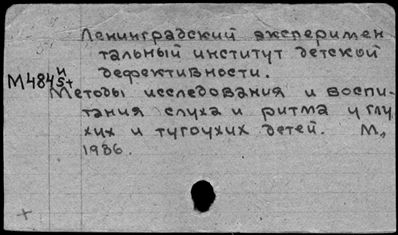 Ленинградский эксперимен
тальный институт детской
дефективности.
М484 и
5+
Методы исследования и воспи-
тания слуха и ритма у глу
хих и тугоухих детей. М.,
1986.
+